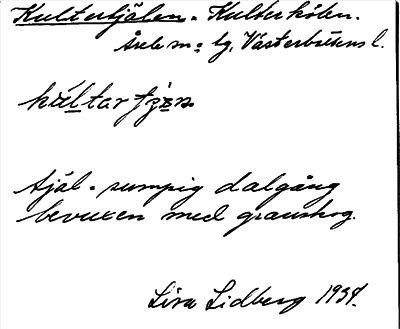 Kultertjälen = Kulterkölen.
Åsele sn = lg. Västerbottens l.
kùltartjɛ̄n
tjäl = sumpig dalgång
bevuxen med granskog.
Lisa Lidberg 1939.